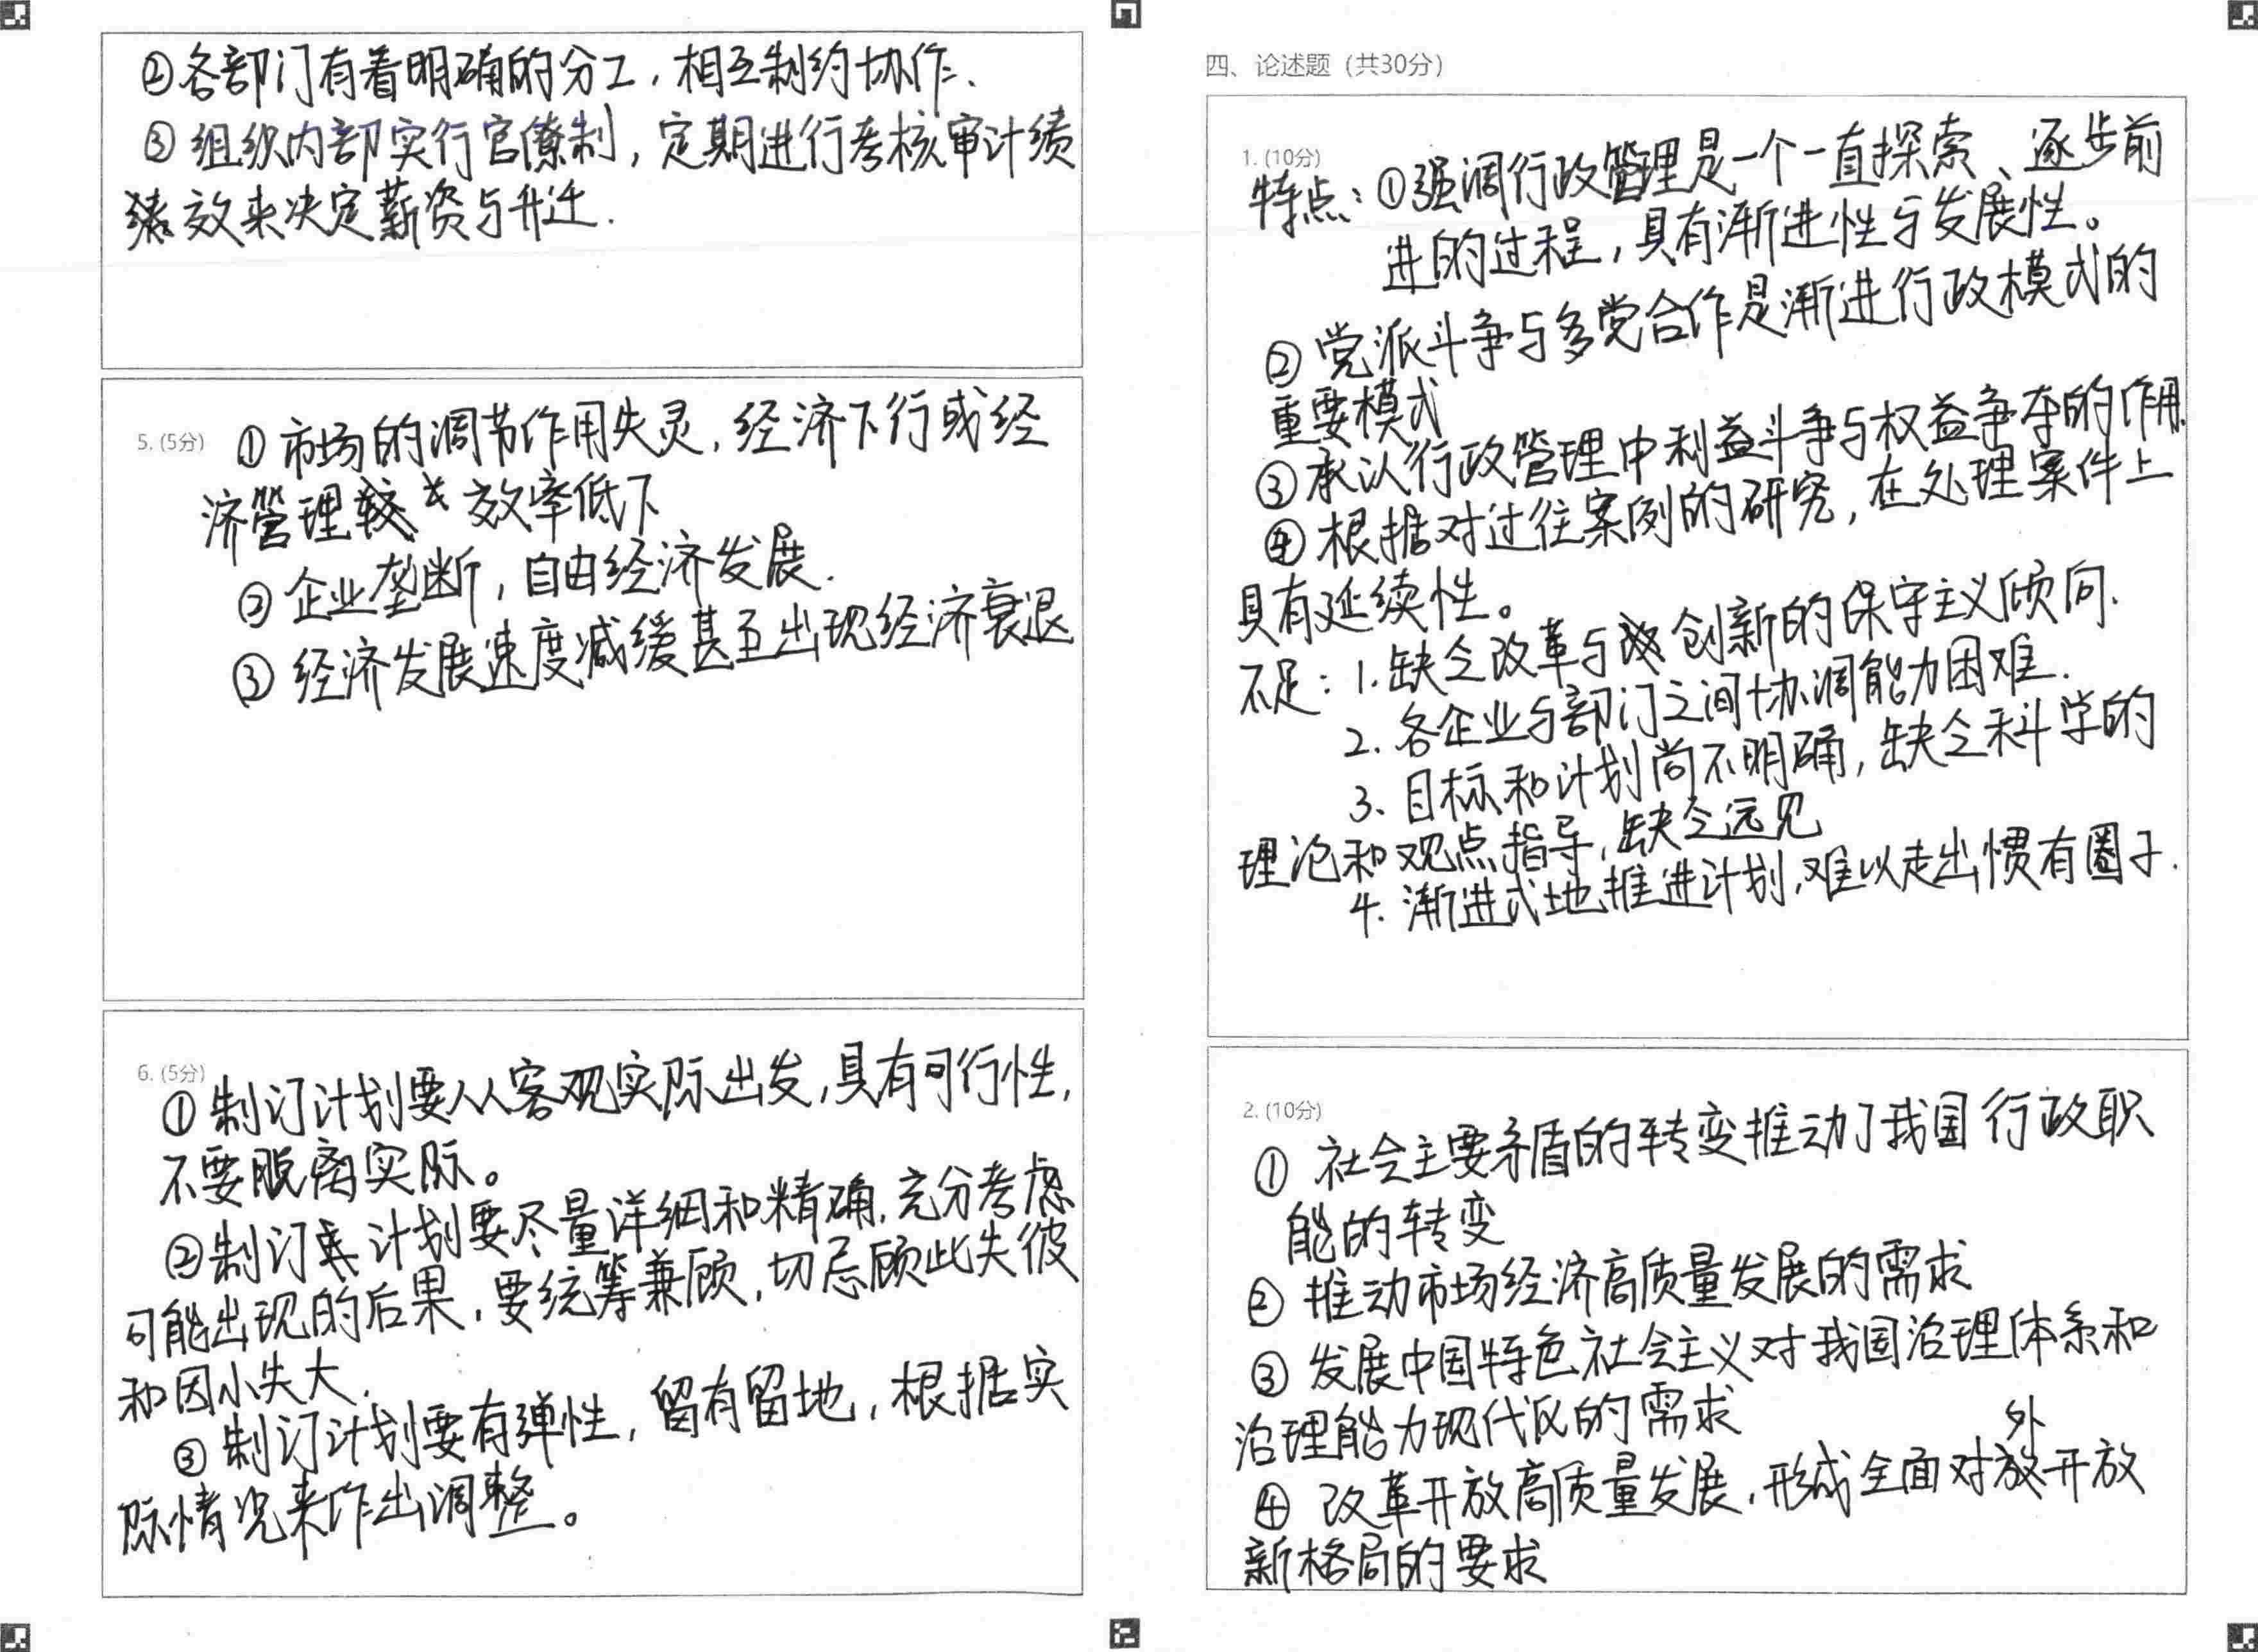 ②各部门有着明确的分工，相互制约协作、
③组织内部实行官僚制，定期进行考核审计绩
效来决定薪资与升迁.
5. (5分) ①市场的调节作用失灵，经济下行或经
济管理效率低下
②企业垄断，自由经济发展.
③经济发展速度减缓甚至出现经济衰退
6. (5分)
①制订计划要从客观实际出发，具有可行性，
不要脱离实际。
②制订计划要尽量详细和精确，充分考虑
可能出现的后果，要统筹兼顾，切忌顾此失彼
和因小失大.
③制订计划要有弹性，留有留地，根据实
际情况来作出调整。
四、论述题（共30分）
1. (10分)
特点：①强调行政管理是一个一直探索、逐步前
进的过程，具有渐进性与发展性。
②党派斗争与多党合作是渐进行政模式的
重要模式
③承认行政管理中利益斗争与权益争夺的作用.
④根据对过往案例的研究，在处理案件上
具有延续性。
不足：1.缺乏改革与创新的保守主义倾向.
2. 各企业与部门之间协调能力困难.
3、目标和计划尚不明确，缺乏科学的
理论和观点指导，缺乏远见
4. 渐进式地推进计划，难以走出惯有圈子.
2. (10分)
①社会主要矛盾的转变推动了我国行政职
能的转变
②推动市场经济高质量发展的需求
③发展中国特色社会主义对我国治理体系和
治理能力现代化的需求
④改革开放高质量发展，形成全面对外开放
新格局的要求